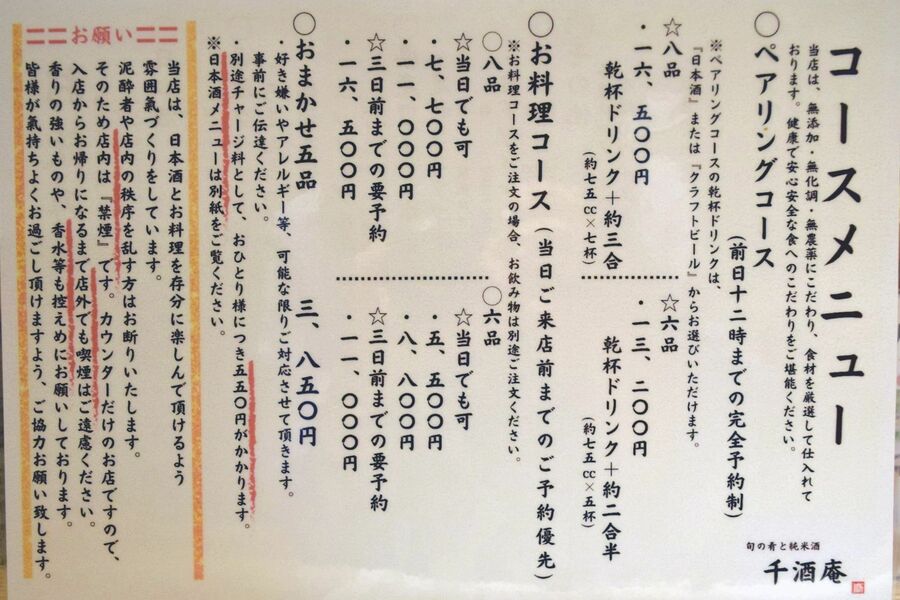 コースメニュー
当店は、無添加・無化調・無農薬にこだわり、食材を厳選して仕入れて
おります。健康で安心安全な食へのこだわりをご堪能ください。
旬の肴と純米酒
千酒庵
〇ペアリングコース(前日十二時までの完全予約制)
※ペアリングコースの乾杯ドリンクは、
『日本酒』または『クラフトビール』からお選びいただけます。
☆八品
・一六、五〇〇円
乾杯ドリンク+約三合
(約七五cc×七杯)
☆六品
・一三、二〇〇円
乾杯ドリンク+約二合半
(約七五cc×五杯)
〇お料理コース(当日ご来店前までのご予約優先)
※お料理コースをご注文の場合、お飲み物は別途ご注文ください。
〇八品
☆当日でも可
・七、七〇〇円
・一一、〇〇〇円
☆三日前までの要予約
・一六、五〇〇円
〇六品
☆当日でも可
・五、五〇〇円
・八、八〇〇円
☆三日前までの要予約
・一一、〇〇〇円
〇おまかせ五品 三、八五〇円
・好き嫌いやアレルギー等、可能な限りご対応させて頂きます。
事前にご伝達ください。
・別途チャージ料として、おひとり様につき五五〇円がかかります。
※日本酒メニューは別紙をご覧ください。
〓〓お願い〓〓
当店は、日本酒とお料理を存分に楽しんで頂けるよう
雰囲氣づくりをしています。
泥酔者や店内の秩序を乱す方はお断りいたします。
そのため店内は『禁煙』です。カウンターだけのお店ですので、
入店からお帰りになるまで店外でも喫煙はご遠慮ください。
香りの強いものや、香水等も控えめにお願いしております。
皆様が氣持ちよくお過ごし頂けますよう、ご協力お願い致します。